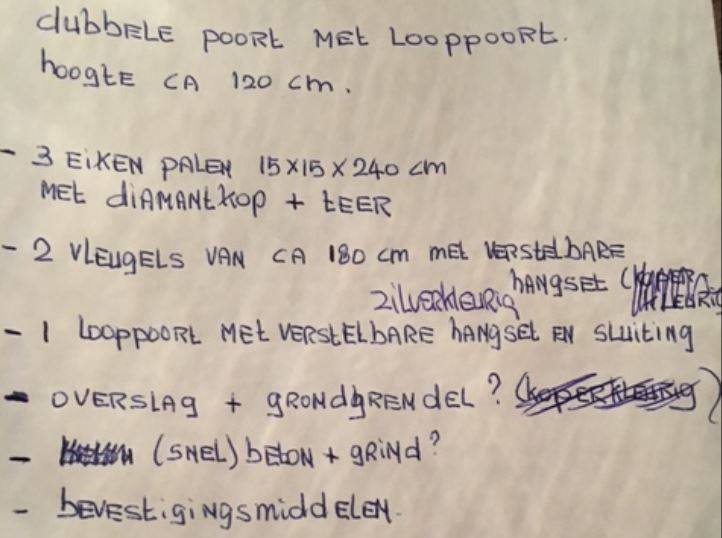 dubbele poort met looppoort.
hoogte ca 120 cm.
- 3 eiken palen 15x15x240 cm
met diamantkop + teer
- 2 vleugels van ca 180 cm met verstelbare
hangset (koperkleurig
zilverkleurig
- 1 looppoort met verstelbare hangset en sluiting
- overslag + grondgrendel? (koperkleurig)
- (snel) beton + grind?
- bevestigingsmiddelen.